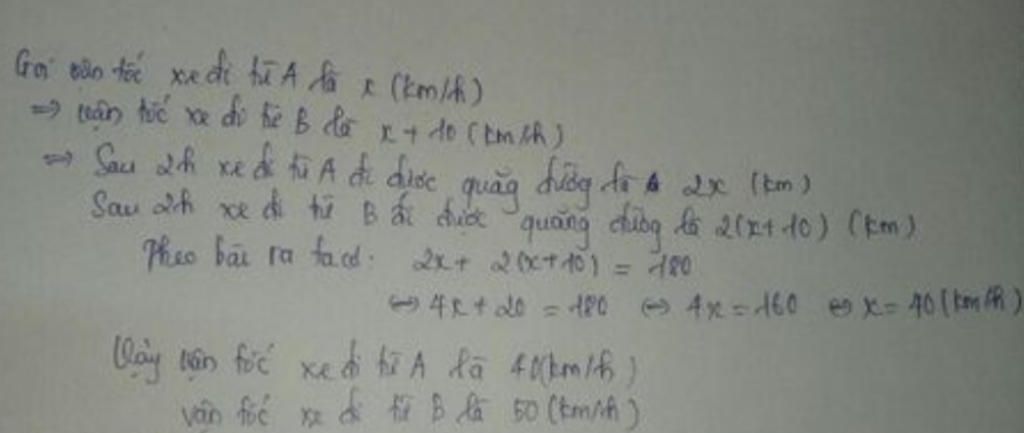 Gọi vận tốc xe đi từ A là x (km/h)
=> vận tốc xe đi từ B là x + 10 (km/h)
=> Sau 2h xe đi từ A đi được quãg đườg là 2x (km)
Sau 2h xe đi từ B đi được quãng đườg là 2(x+10) (km)
Theo bài ra ta có: 2x + 2(x+10) = 180
⇔ 4x + 20 = 180 ⇔ 4x = 160 ⇔ x = 40 (km/h)
Vậy vận tốc xe đi từ A là 40(km/h)
vận tốc xe đi từ B là 50 (km/h)